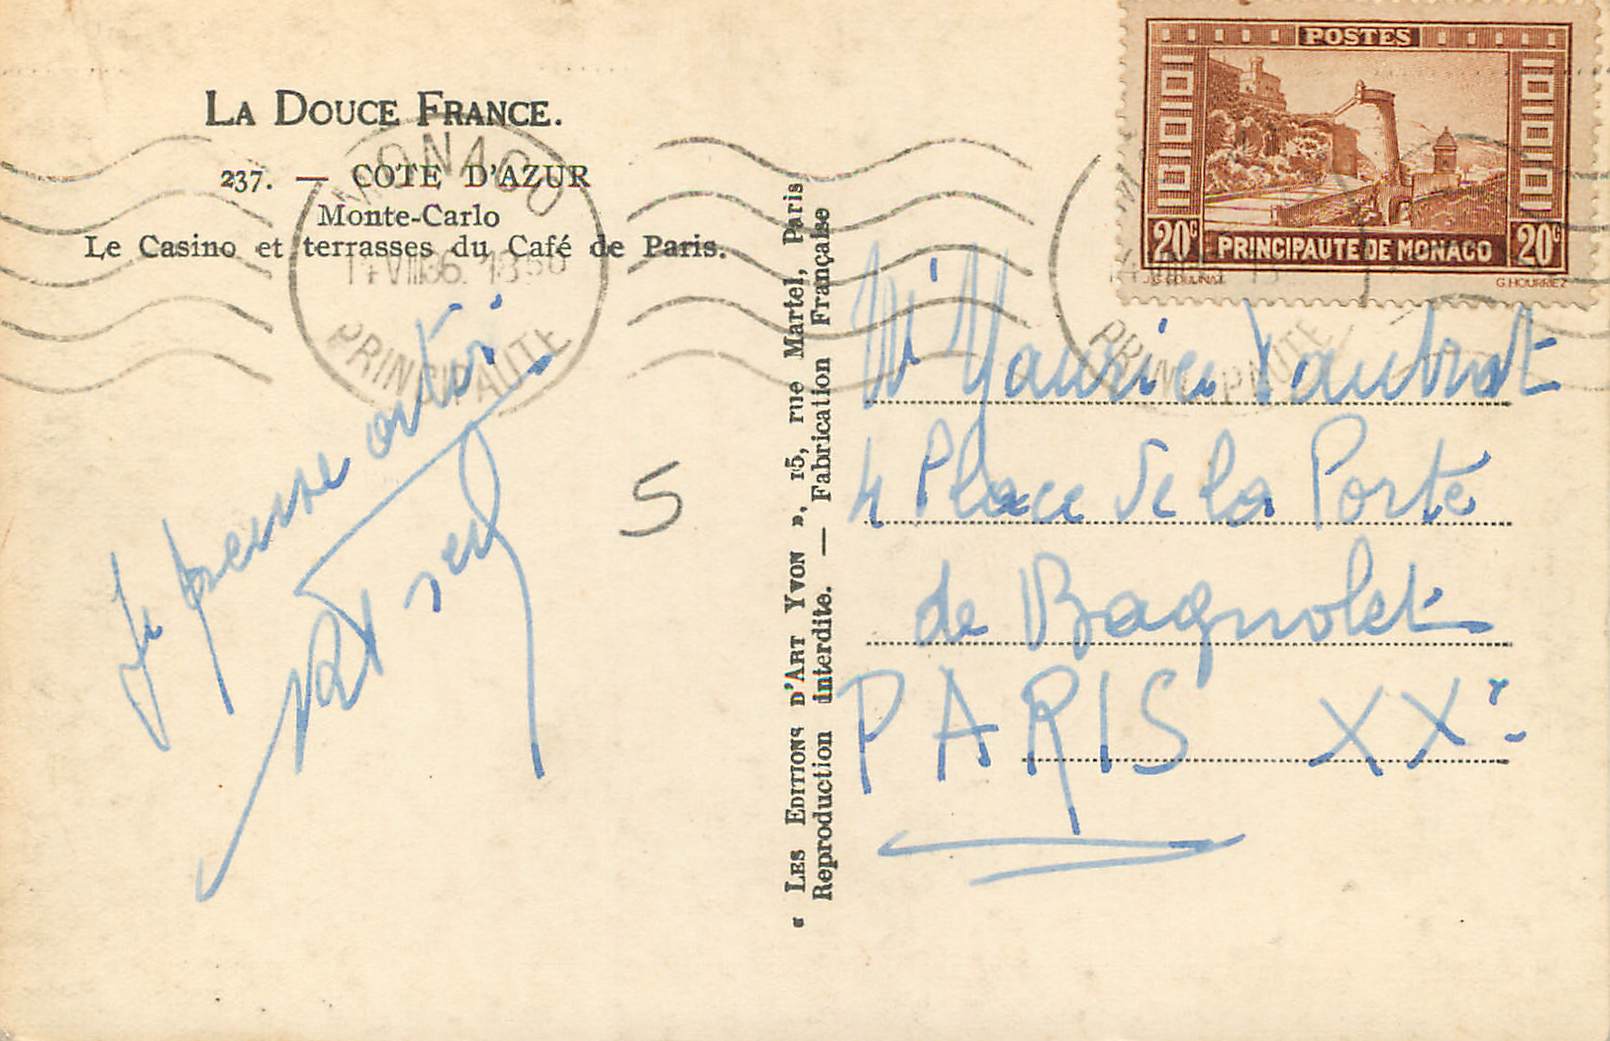 LA DOUCE FRANCE.
237. — COTE D'AZUR
Monte-Carlo
Le Casino et terrasses du Café de Paris.
MONACO
14 VIII 36. 18
PRINCIPAUTE
Je pense
5
« LES EDITIONS D'ART YVON », 15, rue Martel, Paris
Reproduction interdite. — Fabrication Française
POSTES
20c PRINCIPAUTE DE MONACO 20c
G.HOURRIEZ
PRINCIPAUTE
Mr Maurice
4 Place de la Porte
de Bagnolet
PARIS XXe